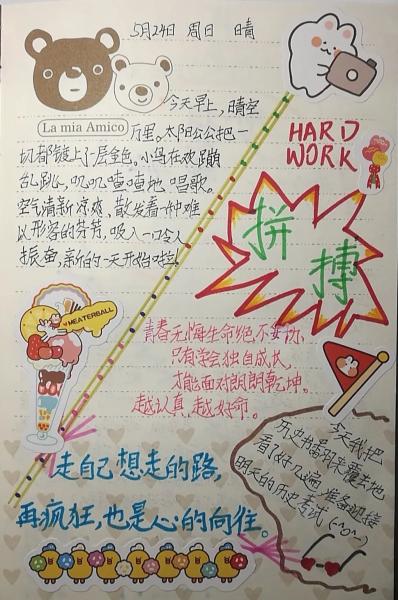 5月24日 周日 晴
今天早上，晴空
La mia Amico
万里。太阳公公把一
切都镀上了层金色。小鸟在欢蹦
乱跳，叽叽喳喳地唱歌。
空气清新凉爽、散发着一种难
以形容的芬芳，吸入一口令人
振奋，新的一天开始啦！
HARD
WORK
拼
搏
MEATERBALL
青春无悔生命绝不妄动，
只有学会独自成长，
才能面对朗朗乾坤。
越认真，越好命。
今天我把
历史书翻来覆去地
看了好几遍，准备迎接
明天的历史考试
走自己想走的路，
再疯狂，也是心的向往。